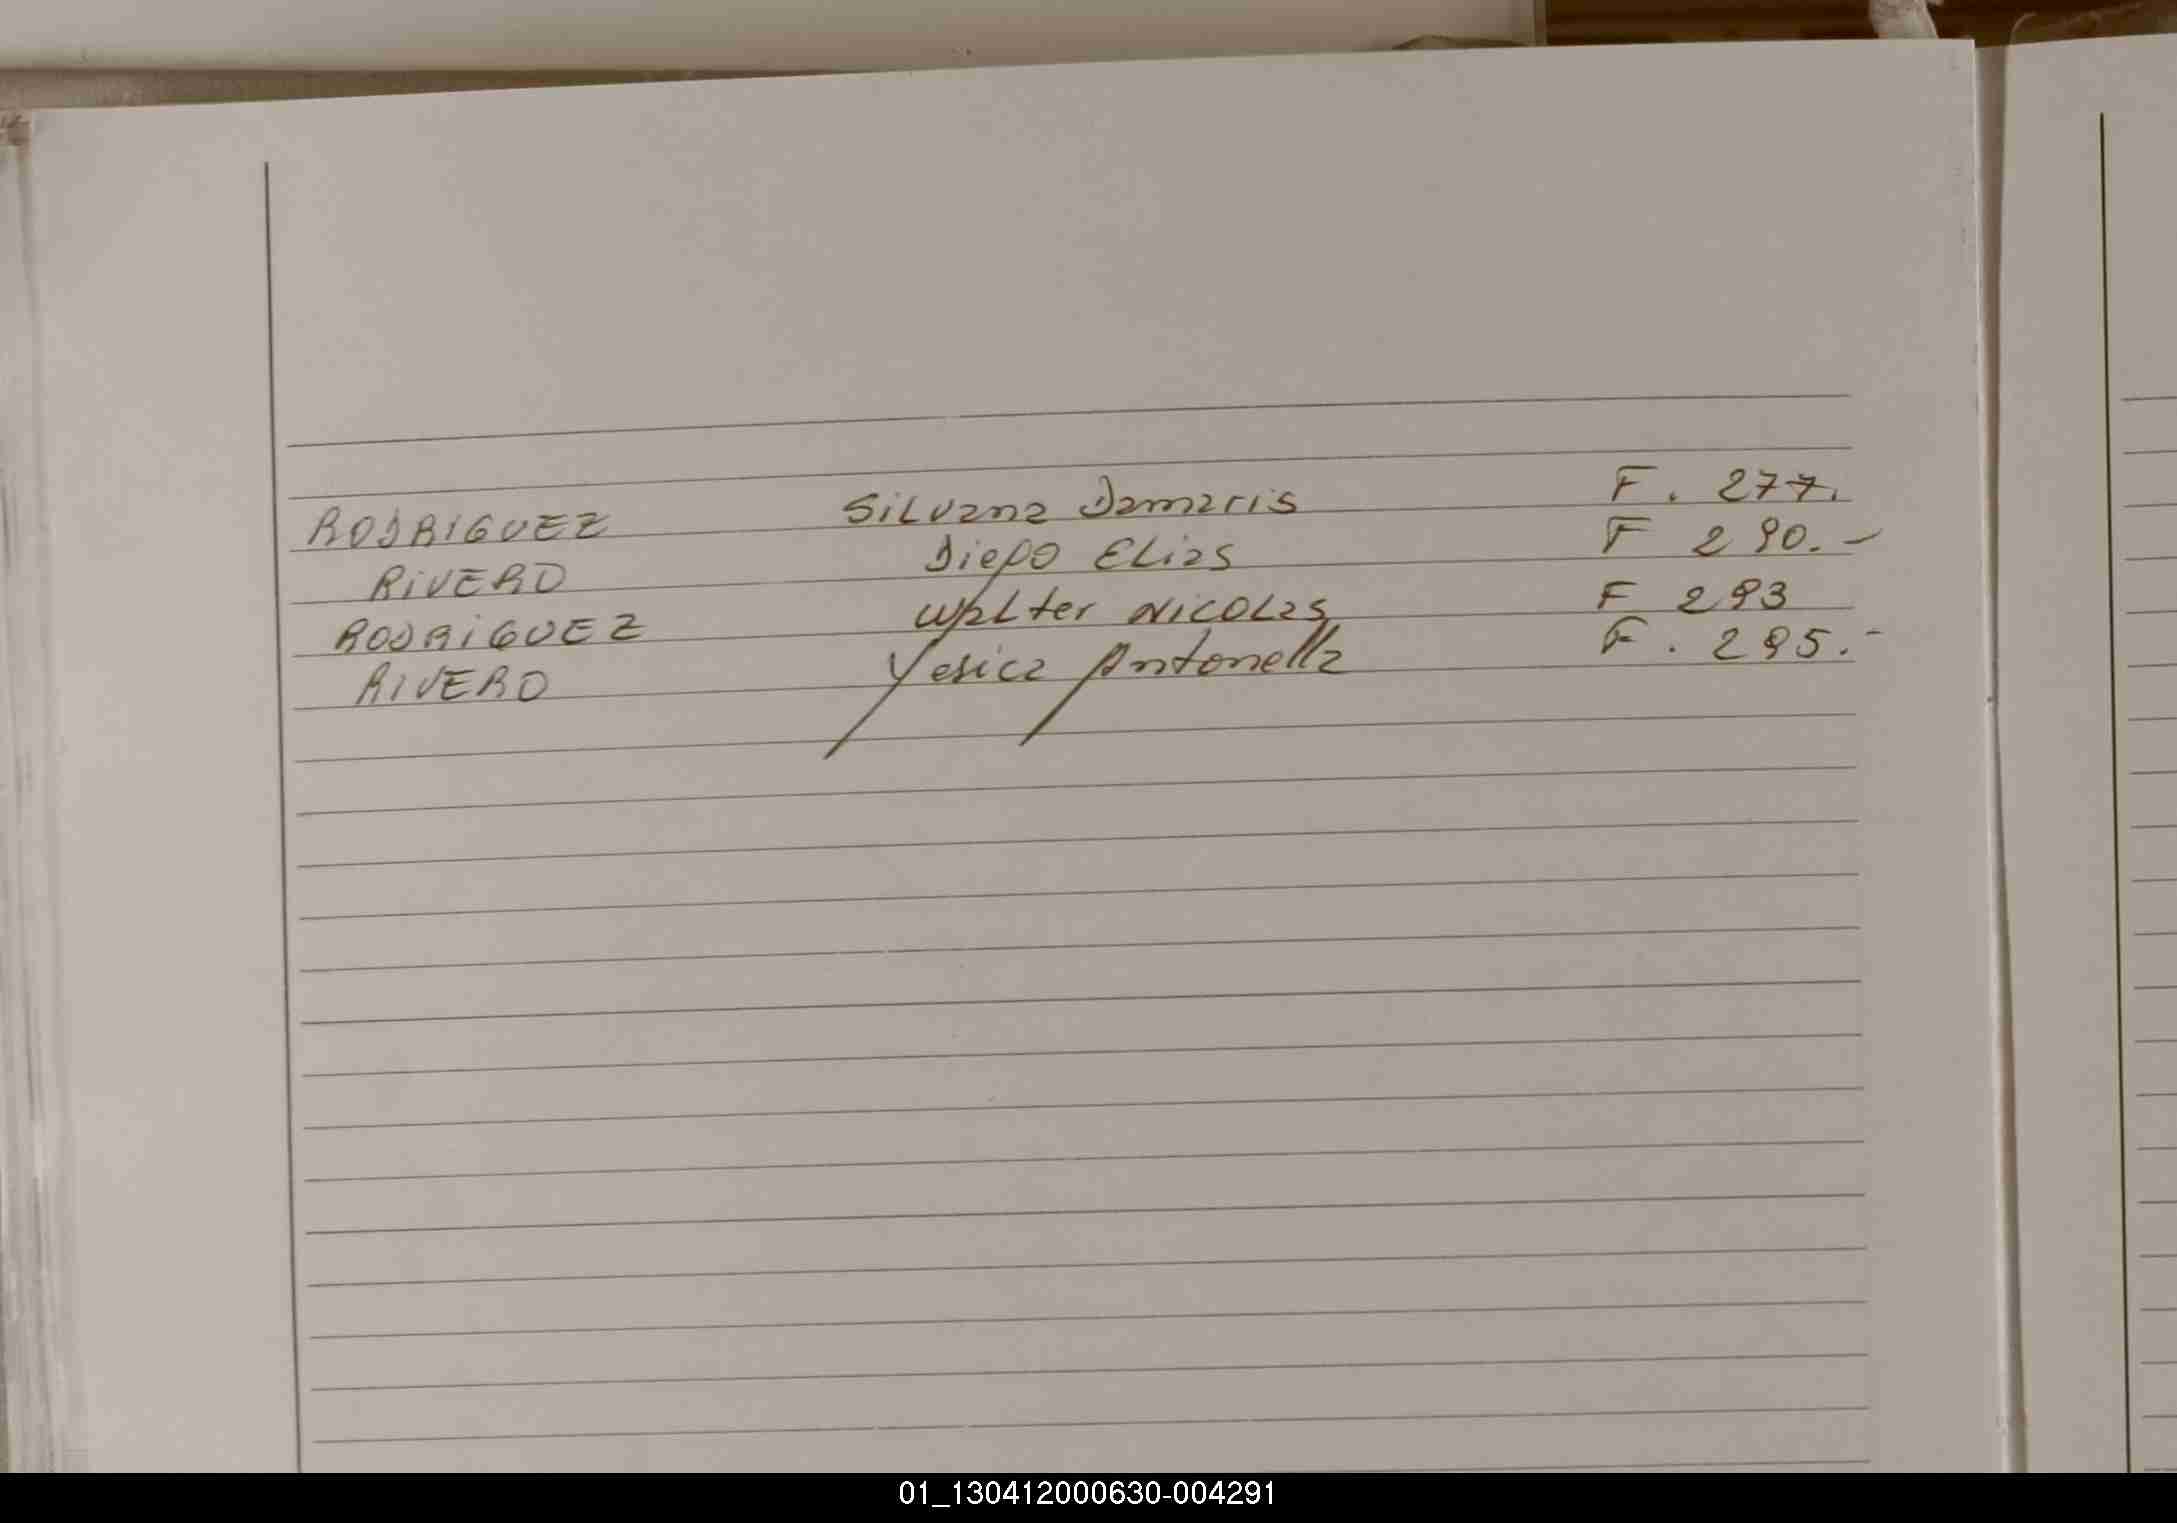 RODRIGUEZ Silvana Damaris F. 277.
RIVERO Diego Elias F 290.-
RODRIGUEZ Walter Nicolas F 293
RIVERO Yesica Antonella F. 295.-
01_130412000630-004291